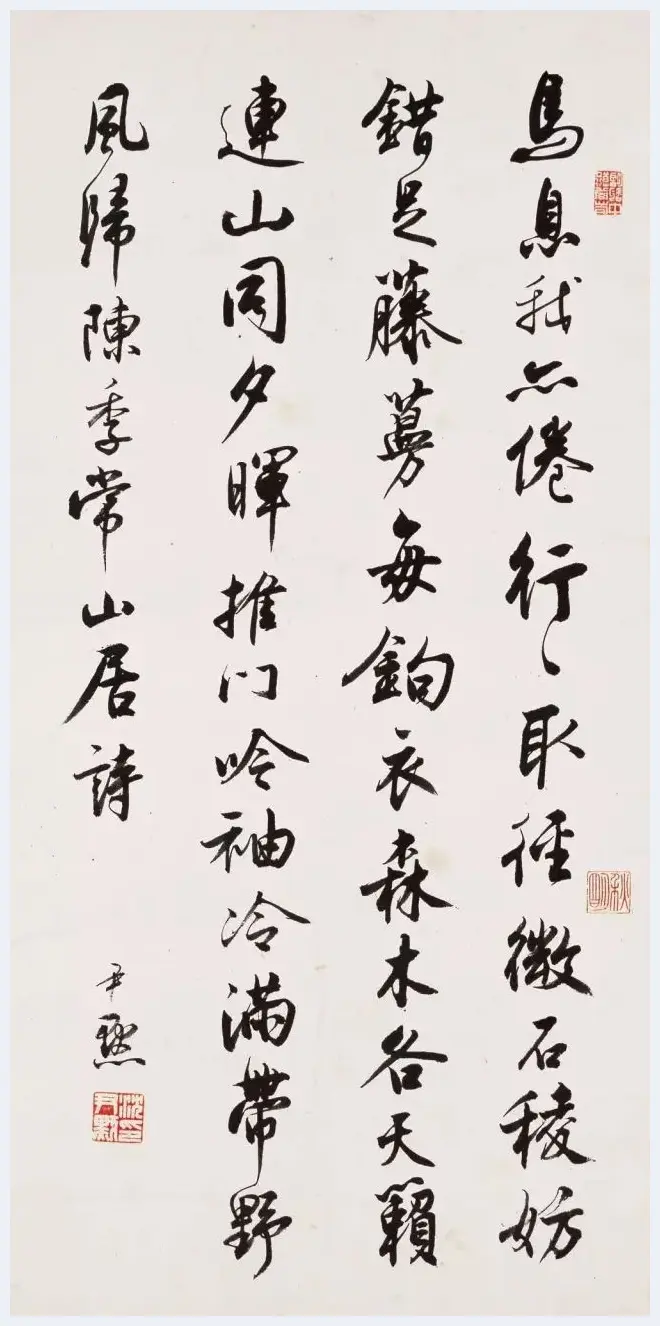 馬息我亦倦行〻取徑微石稜妨
錯足藤蔓每鉤衣森木各天籟
連山同夕暉推門吟袖冷滿帶野
風歸陳季常山居詩
尹默
沈印尹默
秋明